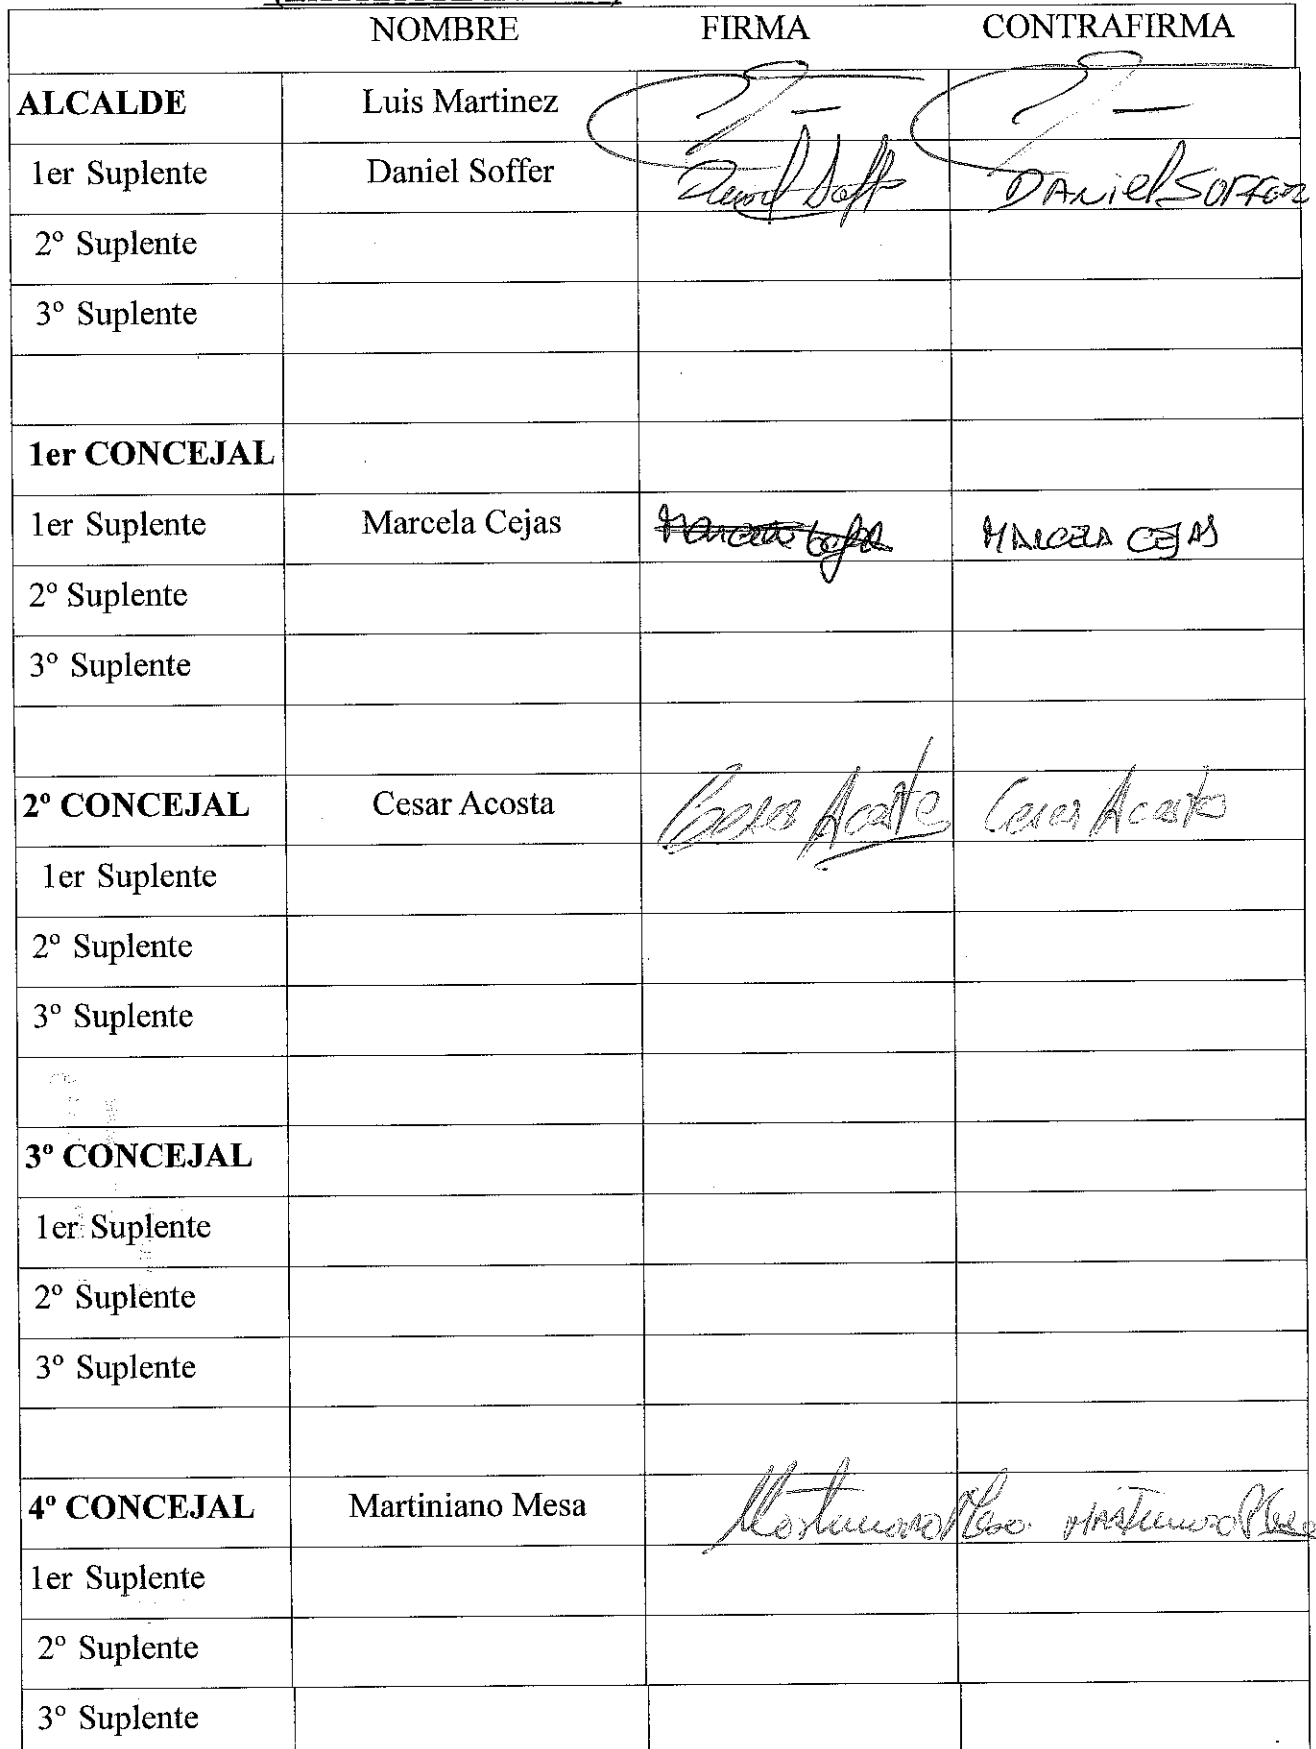 NOMBRE FIRMA CONTRAFIRMA
ALCALDE Luis Martinez
1er Suplente Daniel Soffer Daniel Soff DANiel SOFFER
2º Suplente
3º Suplente
1er CONCEJAL
1er Suplente Marcela Cejas MARCELA CEJAS
2º Suplente
3º Suplente
2º CONCEJAL Cesar Acosta Cesar Acosta Cesar Acosta
1er Suplente
2º Suplente
3º Suplente
3º CONCEJAL
1er Suplente
2º Suplente
3º Suplente
4º CONCEJAL Martiniano Mesa Martiniano Mesa MARTiniano Mesa
1er Suplente
2º Suplente
3º Suplente